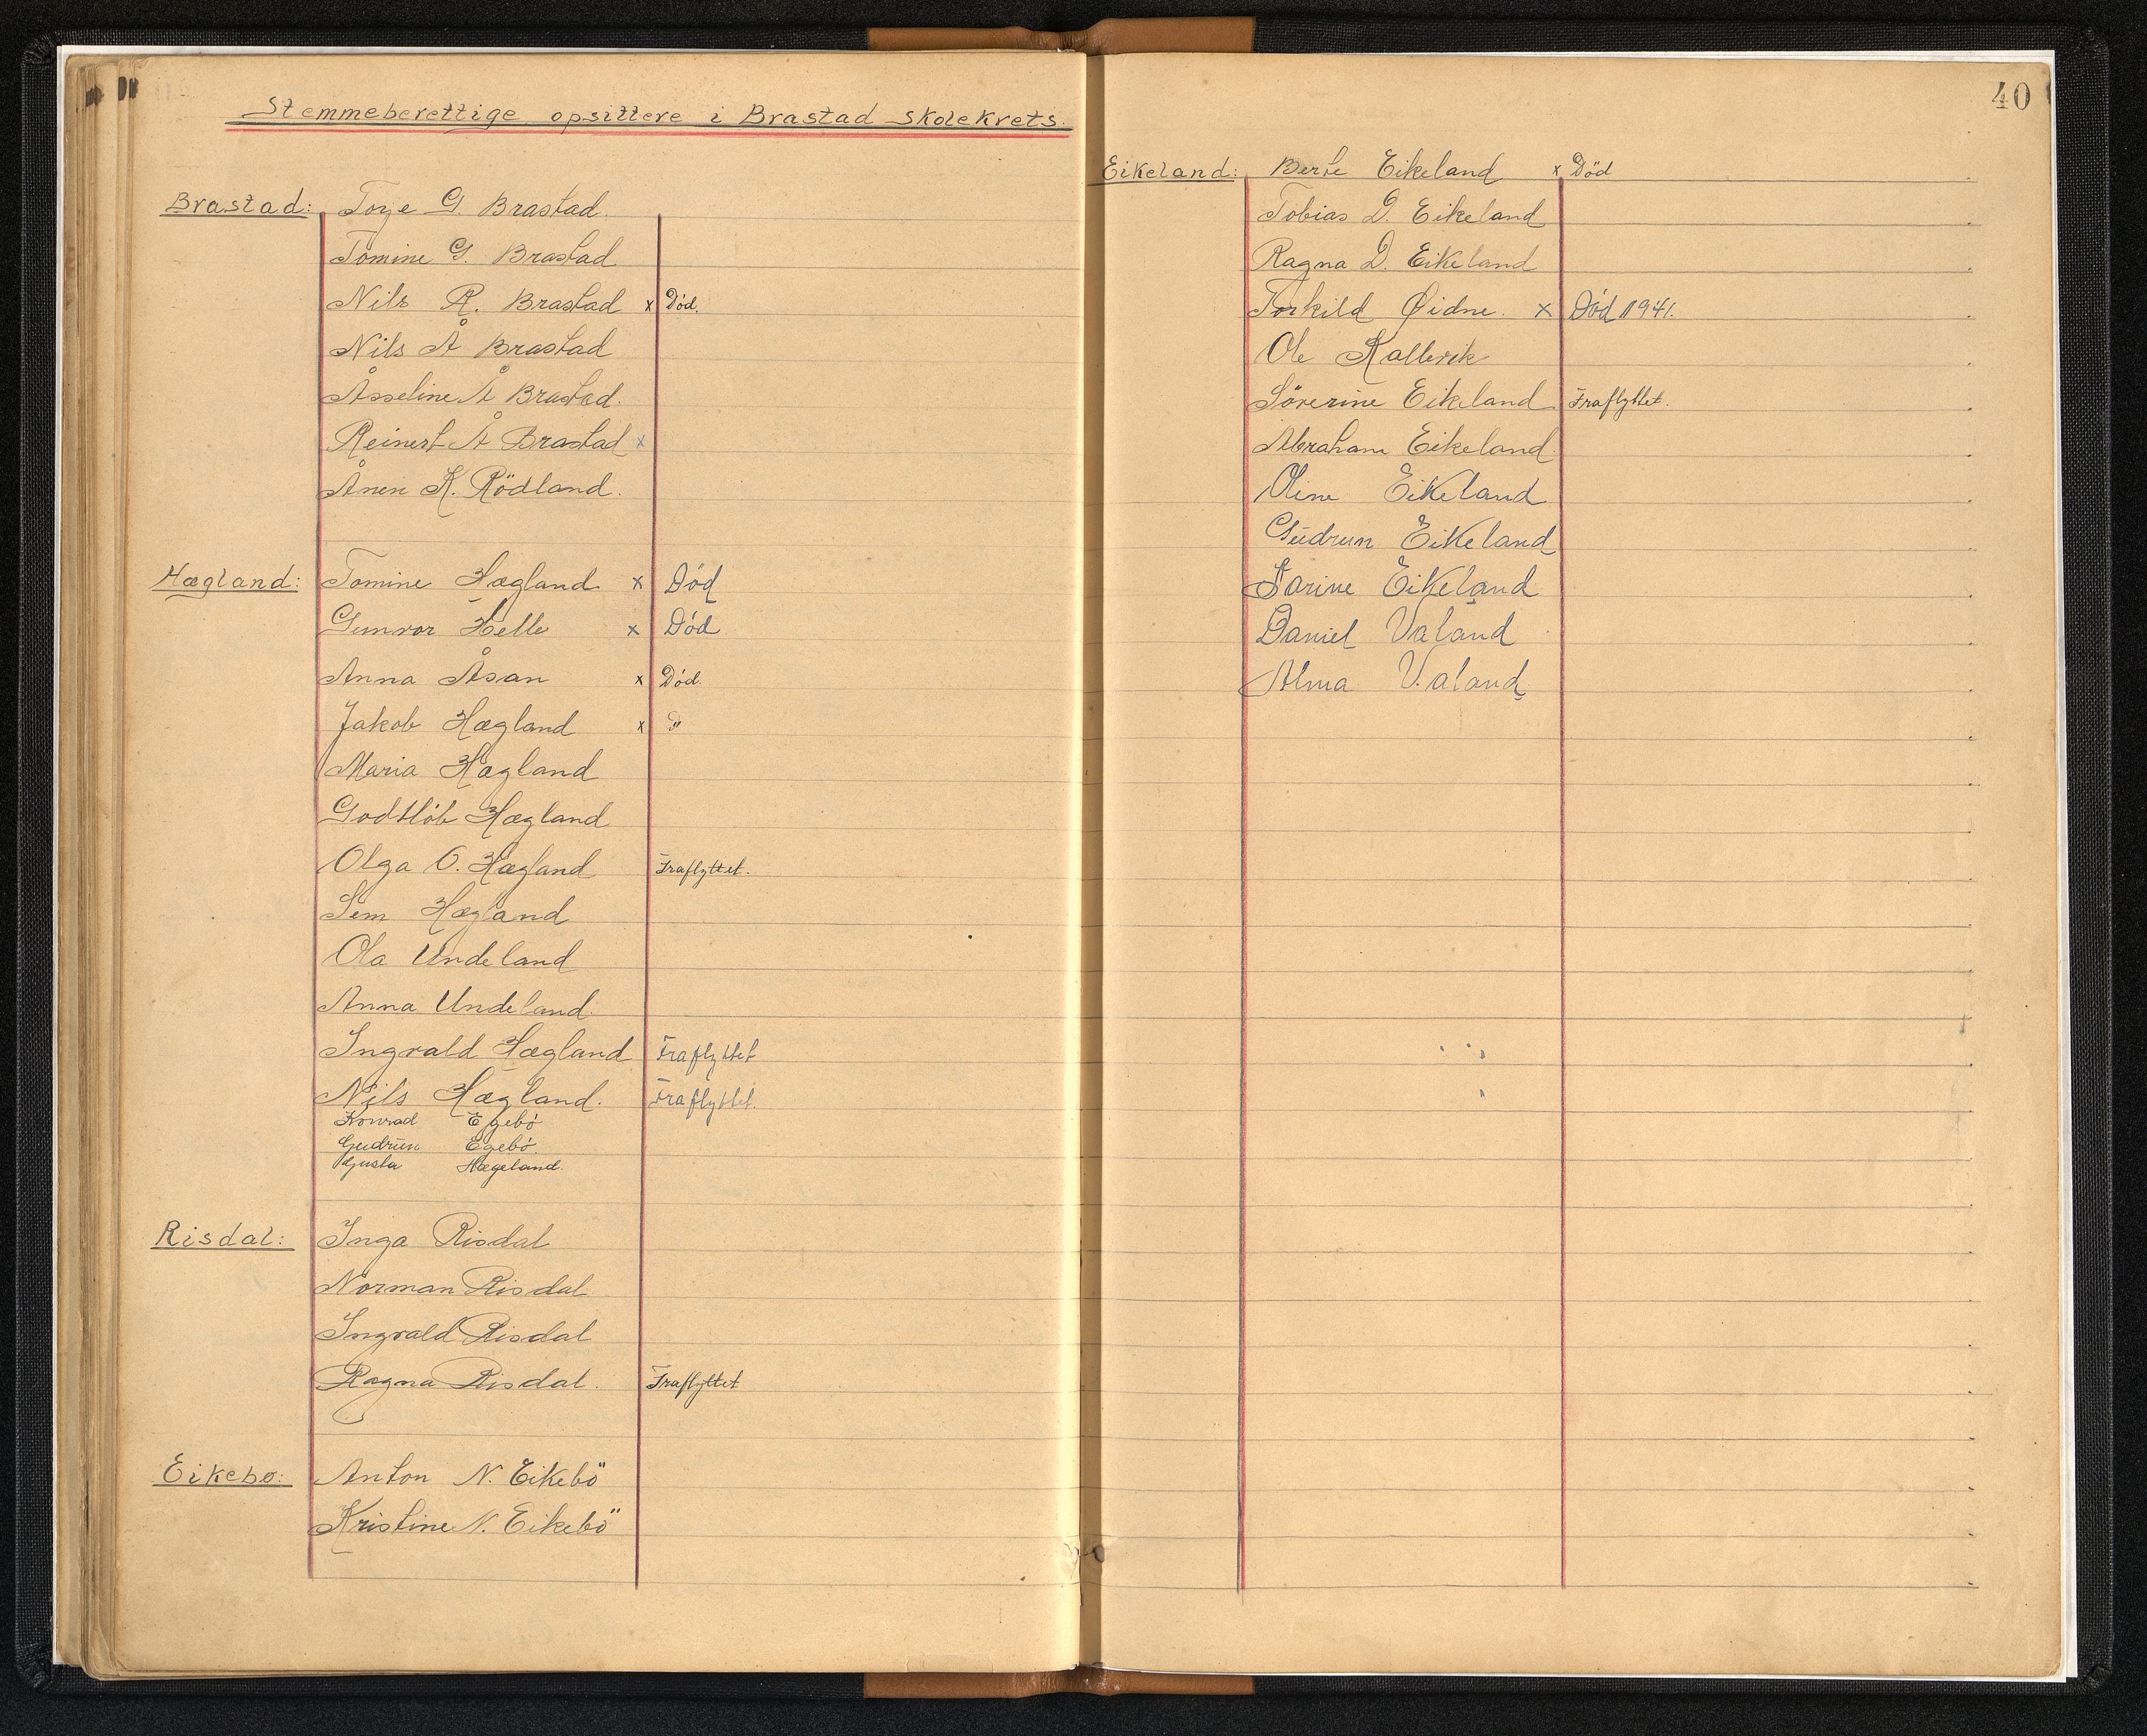 Stemmeberettige opsittere i Brastad skolekrets.
Brastad: Torje G. Brastad.
Tomine G. Brastad
Nils R. Brastad x Död.
Nils Å Brastad
Åsseline Å Brastad.
Reinert Å Brastad x
Ånen K. Rödland.
Hægland: Tomine Hægland x Död
Gunvor Helle x Död
Anna Åsan x Död.
Jakob Hægland x "
Maria Hægland
Godtlöb Hægland
Olga O. Hægland Fraflyttet.
Sem Hægland
Ola Undeland
Anna Undeland.
Ingvald Hægland Fraflyttet
Nils Hægland. Fraflyttet.
Konrad Egebö
Gudrun Egebö.
Gusta Hægeland.
Risdal: Inga Risdal
Norman Risdal
Ingvald Risdal
Ragna Risdal. Fraflyttet
Eikebø: Anton N. Eikebö
Kristine N. Eikebö
40
Eikeland: Berte Eikeland x Död
Tobias D. Eikeland
Ragna D. Eikeland
Torkild Øidne. x Död 1941.
Ole Kallevik
Söverine Eikeland Fraflyttet.
Abraham Eikeland.
Oline Eikeland
Gudrun Eikeland
Sarine Eikeland
Daniel Valand
Alma Valand.